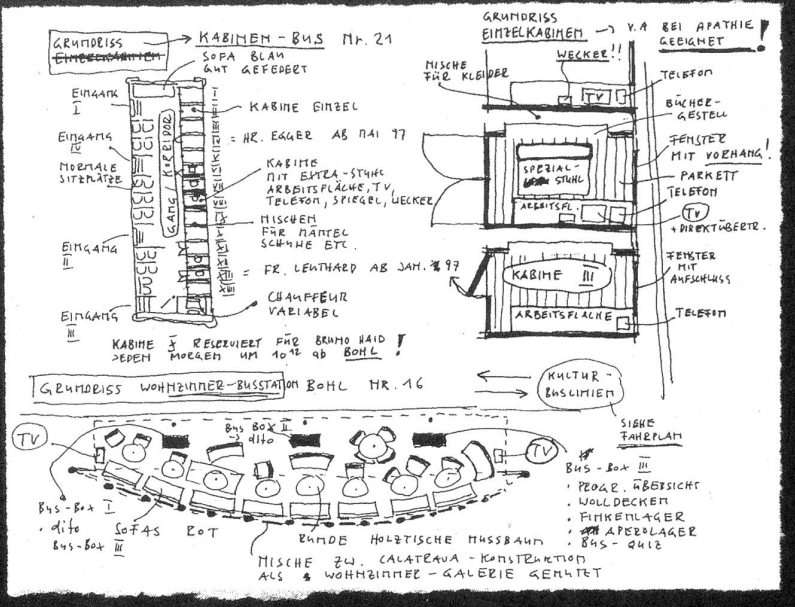 GRUNDRISS
EINZELKABINEN
KABINEN-BUS Nr. 21
SOFA BLAU
GUT GEFEDERT
EINGANG
I
EINGANG
IV
NORMALE
SITZPLÄTZE
EINGANG
II
EINGANG
III
GANG / KORRIDOR
KABINE EINZEL
= HR. EGGER AB MAI 97
KABINE
MIT EXTRA-STUHL
ARBEITSFLÄCHE, TV,
TELEFON, SPIEGEL, WECKER
NISCHEN
FÜR MÄNTEL
SCHUHE ETC.
= FR. LEUTHARD AB JAN. 97
CHAUFFEUR
VARIABEL
KABINE RESERVIERT FÜR BRUNO HAID
JEDEN MORGEN UM 10 12 ab BOHL !
GRUNDRISS
EINZELKABINEN
V.A BEI APATHIE
GEEIGNET !
WECKER!!
NISCHE
FÜR KLEIDER
TV
TELEFON
BÜCHER-
GESTELL
FENSTER
MIT VORHANG!
PARKETT
SPEZIAL-
STUHL
TELEFON
ARBEITSFL.
TV
+DIREKTÜBERTR.
FENSTER
MIT
AUFSCHLUSS
KABINE III
ARBEITSFLÄCHE
TELEFON
GRUNDRISS WOHNZIMMER-BUSSTATION BOHL NR. 16
KULTUR-
BUSLINIEN
SIEHE
FAHRPLAN
TV
BUS BOX II
→ dito
TV
BUS-BOX I
• dito
BUS-BOX III
SOFAS ROT
RUNDE HOLZTISCHE NUSSBAUM
NISCHE ZW. CALATRAVA-KONSTRUKTION
ALS WOHNZIMMER-GALERIE GENUTZT
BUS-BOX III
• PROGR. ÜBERSICHT
• WOLLDECKEN
• FINKENLAGER
• APEROLAGER
• BUS-QUIZ